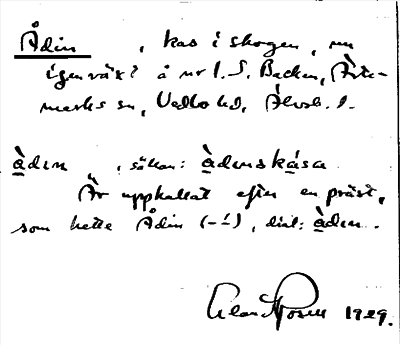 Ådin , kas i skogen, nu
igenväxt å nr 1. S. Backen, Ärte-
marks sn, Vedbo hd, Älvsb. l.
àdın , sällan: àdınskåsa
Är uppkallat efter en präst,
som hette Ådin (–´–), dial: àdın.
1929.